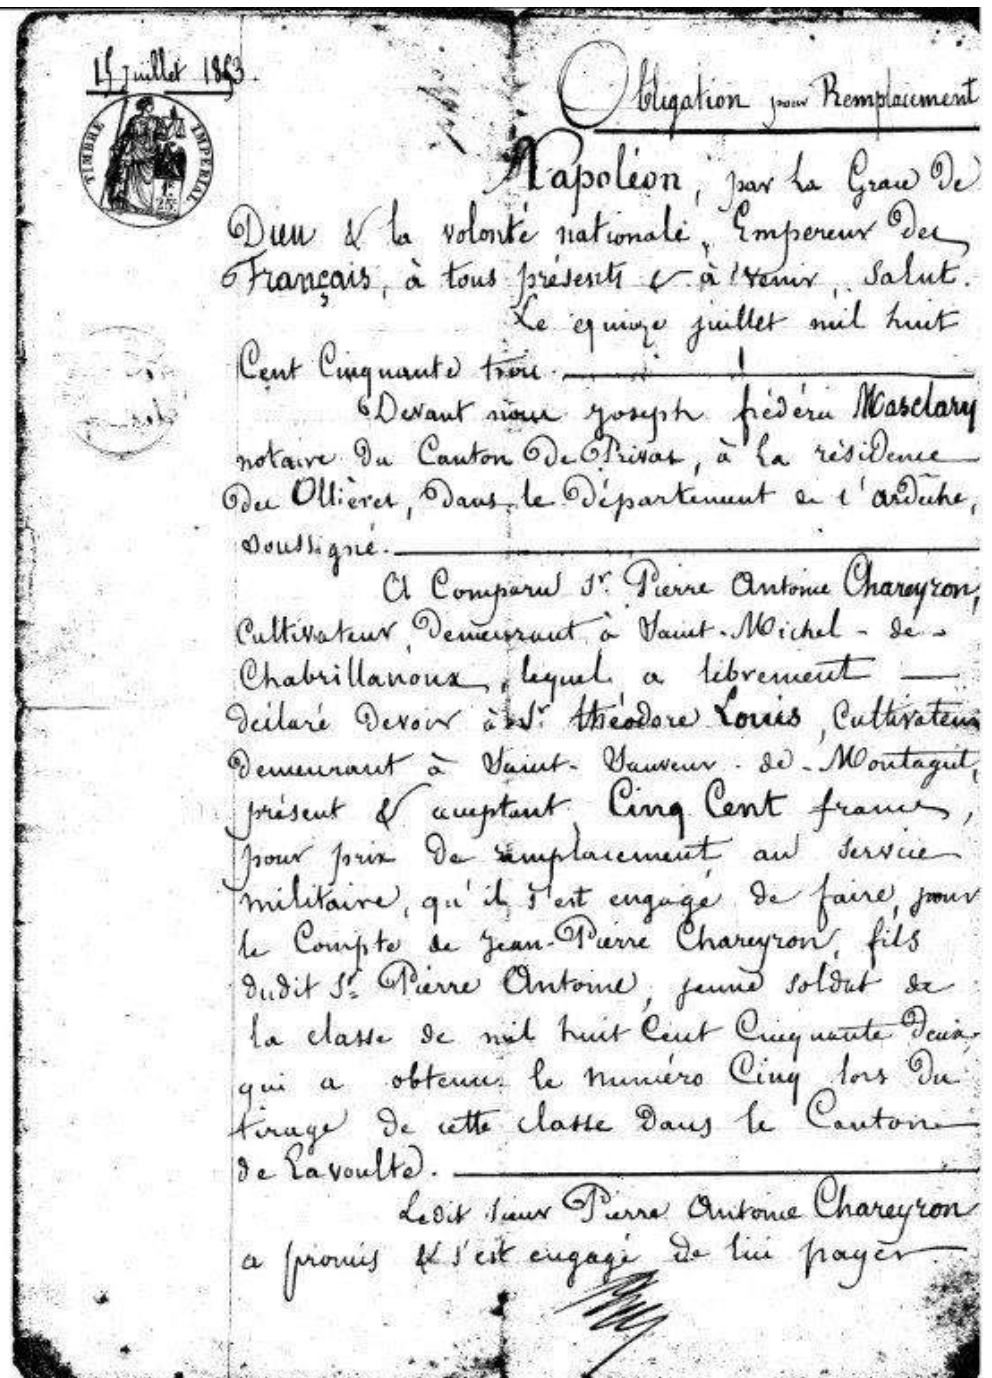 15 Juillet 1853.
TIMBRE IMPERIAL
1F.
25C.
Obligation pour Remplacement
Napoléon, par la Grace De
Dieu & la volonté nationale, Empereur Des
Français, à tous présents & à venir, Salut.
Le quinze juillet mil huit
Cent Cinquante trois.
Devant nous Joseph frédéric Masclary
notaire du Canton De Privas, à la résidence
Des Ollières, Dans le Département de l'ardèche,
soussigné.
A Comparu Sr. Pierre Antoine Chareyron,
Cultivateur, Demeurant à Saint-Michel-de-
Chabrillanoux, lequel a librement
déclaré Devoir à Sr. théodore Louis, Cultivateur
Demeurant à Saint-Sauveur-de-Montagut,
présent & acceptant, Cinq Cent francs,
pour prix De remplacement au service
militaire, qu'il s'est engagé de faire, pour
le Compte de Jean-Pierre Chareyron, fils
dudit Sr. Pierre Antoine, jeune soldat de
la classe de mil huit Cent Cinquante Deux,
qui a obtenu le numéro Cinq lors Du
tirage de cette classe Dans le Canton
de Lavoulte.
Ledit sieur Pierre Antoine Chareyron
a promis & s'est engagé de lui payer